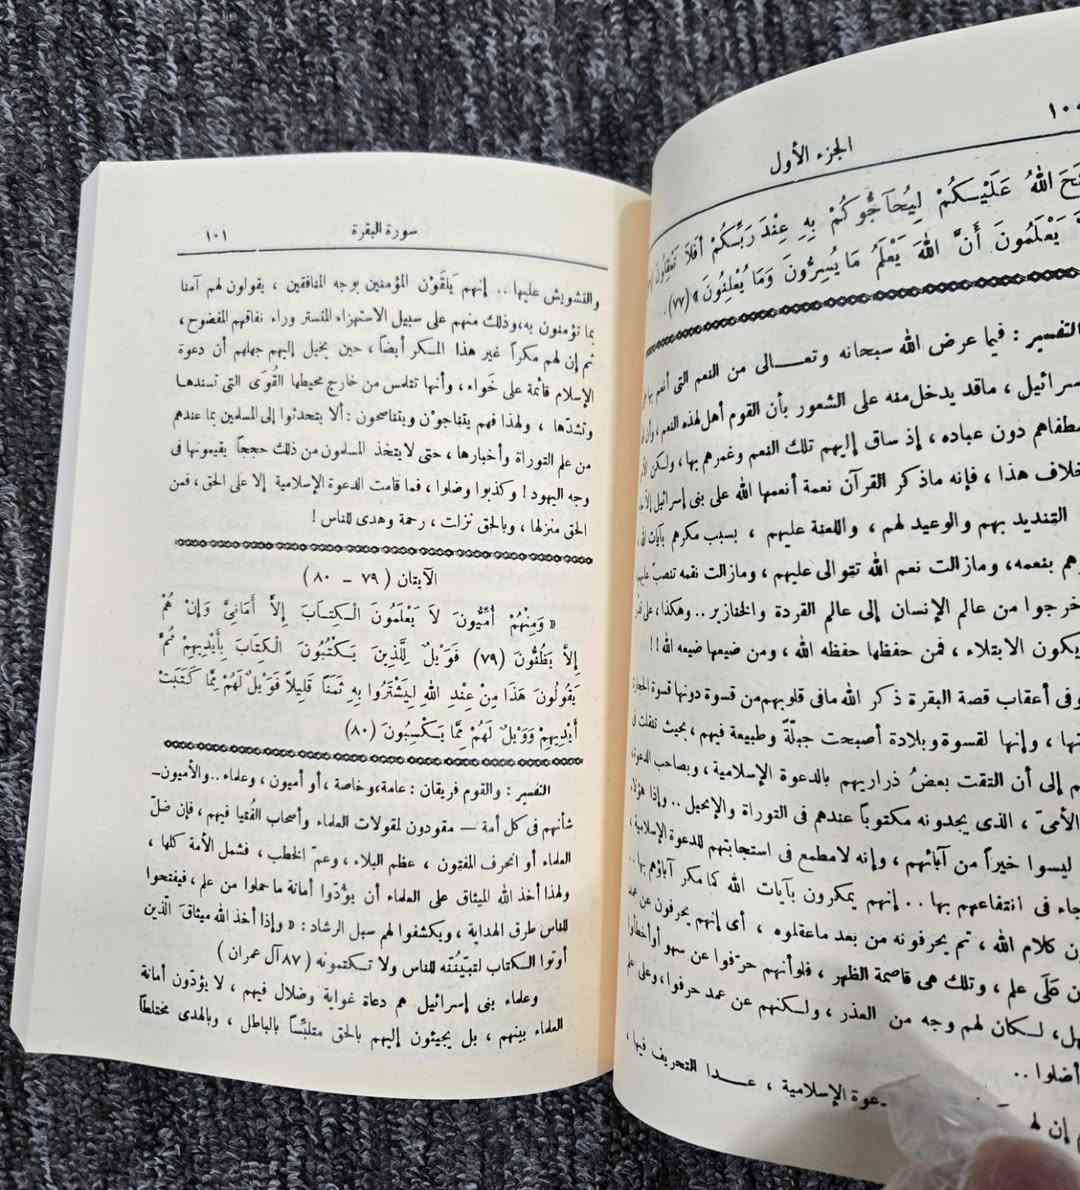 الجزء الأول
الله عَلَيْكُمْ لِيُحَاجُّوكُمْ بِهِ عِنْدَ رَبِّكُمْ أَفَلاَ
يَعْلَمُونَ أَنَّ اللهَ يَعْلَمُ مَا يُسِرُّونَ وَمَا يُعْلِنُونَ» (٧٧).
التفسير : فيما عرض الله سبحانه وتعــالى من النعم التى أنعم بها
، ماقد يدخل منه على الشعور بأن القوم أهل لهذه النعم ، وأن
دون عباده ، إذ ساق إليهم تلك النعم وغمرهم بها ، ولكن
هذا ، فإنه ماذكر القرآن نعمة أنعمها الله على بنى إسرائيل إلا
التنديد بهم والوعيد لهم ، واللعنة عليهم ، بسبب مكرهم بآيات
بنعمه، ومازالت نعم الله تتوالى عليهم ، ومازالت نقمه تنصبّ
من عالم الإنسان إلى عالم القردة والخنازير .. وهكذا ، على
يكون الابتلاء ، فمن حفظها حفظه الله ، ومن ضيعها ضيعه الله !!
وفى أعقاب قصة البقرة ذكر الله مافى قلوبهم من قسوة دونها قسوة
، وإنها لقسوة وبلادة أصبحت جبلّةً وطبيعة فيهم ، بحيث تنقلت
إلى أن التقت بعضُ ذراريهم بالدعوة الإسلامية ، وبصاحب الدعوة
الأمىّ ، الذى يجدونه مكتوباً عندهم فى التوراة والإنجيل .. وإذا هؤلاء
ليسوا خيراً من آبائهم ، وإنه لامطمع فى استجابتهم للدعوة الإسلامية ،
فى انتفاعهم بها .. إنهم يمكرون بآيات الله كما مكر آباؤهم بها ..
كلام الله ، ثم يحرفونه من بعد ماعقلوه ، أى إنهم يحرفون عن عمد
علم ، وتلك هى قاصمة الظهر ، فلو أنهم حرّفوا عن سهو أو أخطأوا
لكان لهم وجه من العذر ، ولكنهم عن عمد حرفوا ، وعلى علم
أضلوا ..
إن الإسلامية ، عــدا التحريف فيها ،
سورة البقرة ١٠١
والتشويش عليها .. إنهم يَلقَوْن المؤمنين بوجه المنافقين ، يقولون لهم آمنا
بما تؤمنون به، وذلك منهم على سبيل الاستهزاء المتستر وراء نفاقهم المفضوح ،
ثم إن لهم مكراً غير هذا المكر أيضاً ، حين يخيل إليهم جهلهم أن دعوة
الإسلام قائمة على خَواء ، وأنها تتلمس من خارج محيطها القُوَى التى تسندها
وتشدّها ، ولهذا فهم يتناجوْن ويتناصحون : ألا يتحدثوا إلى المسلمين بما عندهم
من علم التوراة وأخبارها ، حتى لايتخذ المسلمون من ذلك حججاً يقيمونها فى
وجه اليهود ! وكذبوا وضلوا ، فما قامت الدعوة الإسلامية إلا على الحق ، فمن
الحق منزلها ، وبالحق نزلت ، رحمة وهدى للناس !
الآيتان ( ٧٩ – ٨٠ )
« وَمِنْهُمْ أُمِّيُّونَ لاَ يَعْلَمُونَ الْكِتَابَ إِلاَّ أَمَانِىَّ وَإِنْ هُمْ
إِلاَّ يَظُنُّونَ (٧٩) فَوَيْلٌ لِلَّذِينَ يَكْتُبُونَ الْكِتَابَ بِأَيْدِيهِمْ ثُمَّ
يَقُولُونَ هَذَا مِنْ عِنْدِ اللهِ لِيَشْتَرُوا بِهِ ثَمَناً قَلِيلاً فَوَيْلٌ لَهُمْ مِمَّا كَتَبَتْ
أَيْدِيهِمْ وَوَيْلٌ لَهُمْ مِمَّا يَكْسِبُونَ (٨٠)
التفسير : والقوم فريقان : عامة، وخاصة ، أو أميون ، وعلماء .. والأميون –
شأنهم فى كل أمة – مقودون لمقولات العلماء وأصحاب الفُتيا فيهم ، فإن ضلّ
العلماء أو انحرف المفتون ، عظم البلاء ، وعمّ الخطب ، فشمل الأمة كلها ،
ولهذا أخذ الله الميثاق على العلماء أن يؤدّوا أمانة ماحملوا من علم ، فيفتحوا
للناس طرق الهداية ، ويكشفوا لهم سبل الرشاد : « وإذا أخذ الله ميثاقَ الَّذين
أوتُوا الكتابَ لتبيّنُنّه للناس ولا تكتمونه (٨٧ آل عمران )
وعلماء بنى إسرائيل هم دعاة غواية وضلال فيهم ، لا يؤدّون أمانة
العلماء بينهم ، بل يجيئون إليهم بالحق متلبّساً بالباطل ، وبالهدى مختلطاً